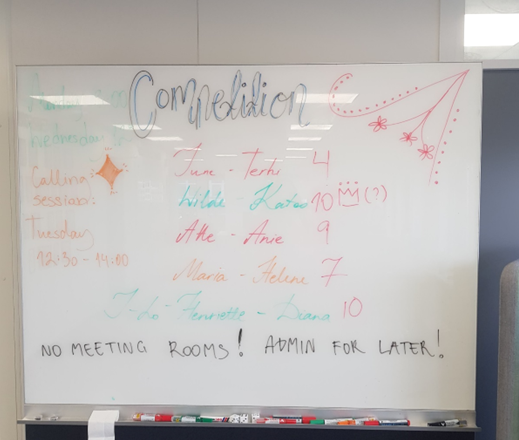 Competition
Wednesday
Calling
session:
Tuesday
12:30 - 14:00
June - Terhi 4
Wilde Katso 10 (?)
Atte - Anie 9
Maria - Helene 7
J-Lo - Henriette - Diana 10
NO MEETING ROOMS! ADMIN FOR LATER!